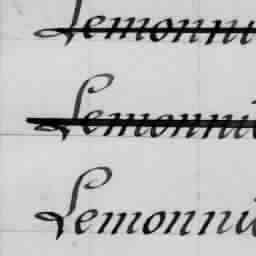 Lemonni
Lemonni
Lemonni